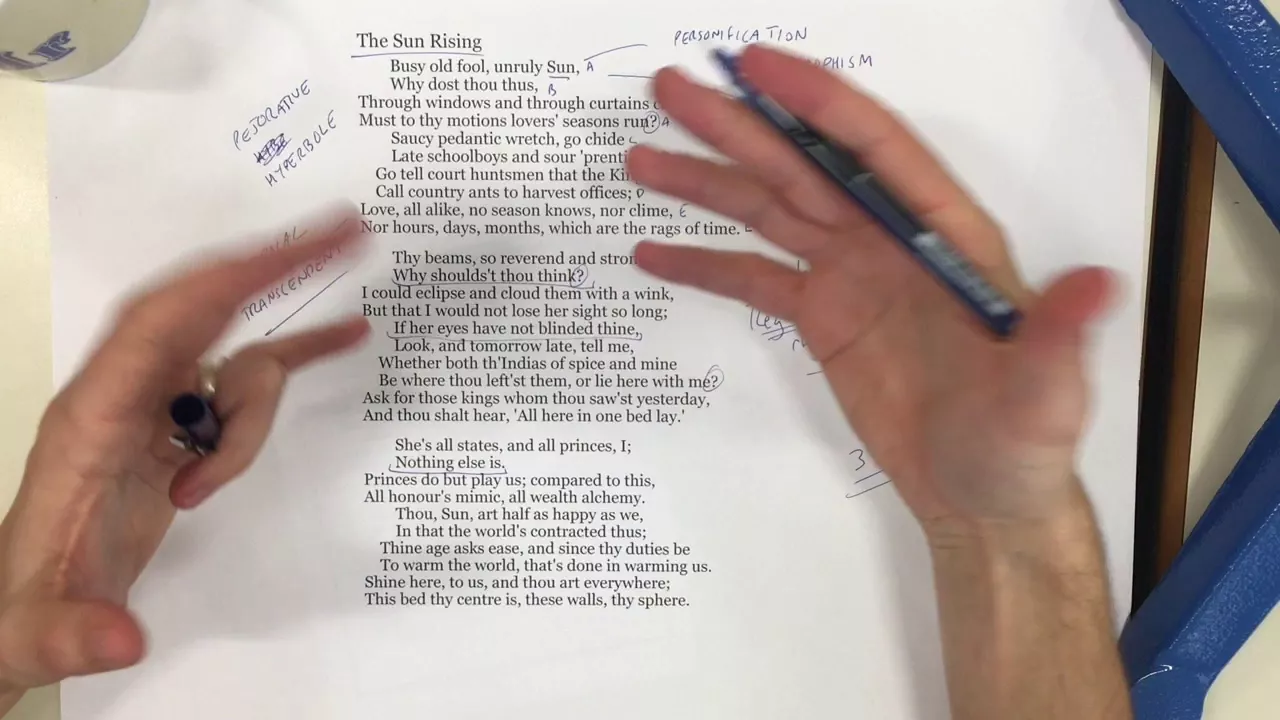 The Sun Rising
PERSONIFICATION
Busy old fool, unruly Sun, A
Why dost thou thus, B
PEJORATIVE
HYPERBOLE
Through windows and through curtains
Must to thy motions lovers' seasons run? A
Saucy pedantic wretch, go chide C
Late schoolboys and sour
Go tell court huntsmen that the
Call country ants to harvest offices; D
Love, all alike, no season knows, nor clime, E
Nor hours, days, months, which are the rags of time. E
TRANSCENDENT
Thy beams, so reverend and
Why shoulds't thou think?
I could eclipse and cloud them with a wink,
But that I would not lose her sight so long;
If her eyes have not blinded thine,
Look, and tomorrow late, tell me,
Whether both th'Indias of spice and mine
Be where thou left'st them, or lie here with me?
Ask for those kings whom thou saw'st yesterday,
And thou shalt hear, 'All here in one bed lay.'
She's all states, and all princes, I;
Nothing else is.
3
Princes do but play us; compared to this,
All honour's mimic, all wealth alchemy.
Thou, Sun, art half as happy as we,
In that the world's contracted thus;
Thine age asks ease, and since thy duties be
To warm the world, that's done in warming us.
Shine here, to us, and thou art everywhere;
This bed thy centre is, these walls, thy sphere.